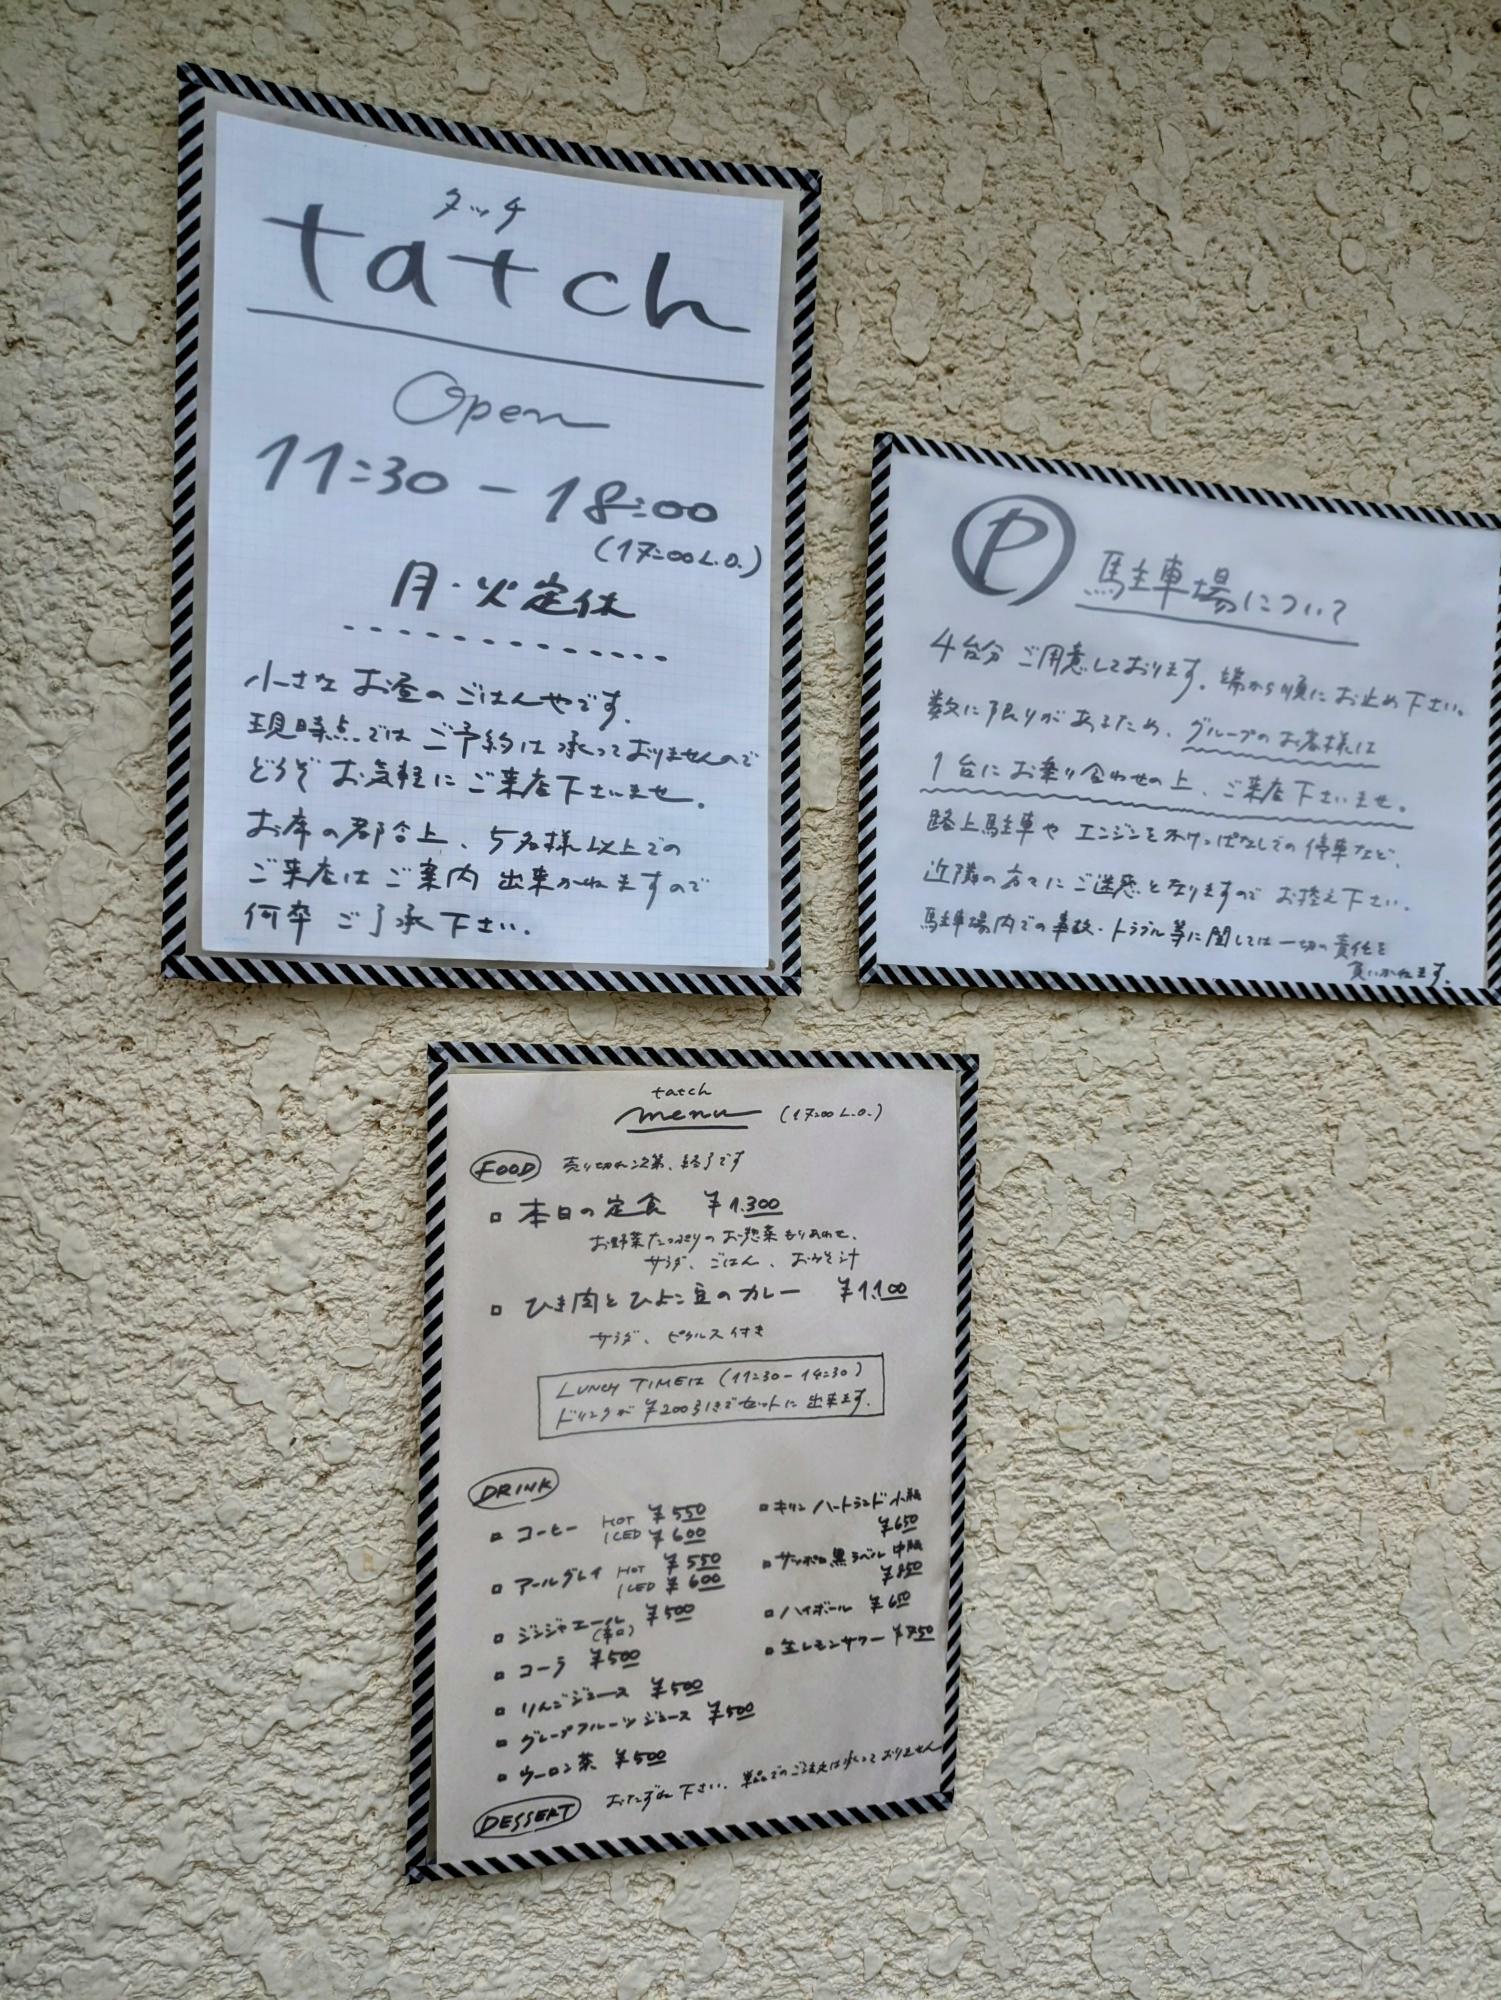 タッチ
tatch
Open
11:30 - 18:00
(17:00 L.O.)
月・火 定休
小さな お昼の ごはんやです。
現時点では ご予約は 承っておりませんので
どうぞ お気軽に ご来店下さいませ。
お席の都合上、5名様以上での
ご来店は ご案内 出来かねますので
何卒 ご了承 下さい。
P 駐車場について
4台分 ご用意しております。端から順に お止め下さい。
数に限りがあるため、グループの お客様は
1台に お乗り合わせの上、ご来店 下さいませ。
路上駐車や エンジンをかけっぱなしでの 停車など、
近隣の方々に ご迷惑となりますので お控え下さい。
駐車場内での事故・トラブル等に関しては 一切の責任を
負いかねます。
tatch
menu (17:00 L.O.)
FOOD 売り切れ次第、終了です
□ 本日の定食 ¥1.300
お野菜たっぷりの お惣菜もりあわせ、
サラダ、ごはん、おみそ汁
□ ひき肉とひよこ豆のカレー ¥1.100
サラダ、ピクルス付き
LUNCH TIMEは (11:30 - 14:30)
ドリンクが ¥200引きでセットに 出来ます。
DRINK
□ コーヒー HOT ¥550
ICED ¥600
□ アールグレイ HOT ¥550
ICED ¥600
□ ジンジャエール ¥500
(辛口)
□ コーラ ¥500
□ りんごジュース ¥500
□ グレープフルーツジュース ¥500
□ ウーロン茶 ¥500
□ キリン ハートランド 小瓶
¥650
□ サッポロ黒ラベル 中瓶
¥850
□ ハイボール ¥650
□ 生レモンサワー ¥750
DESSERT おたずね下さい。単品でのご注文は承っておりません